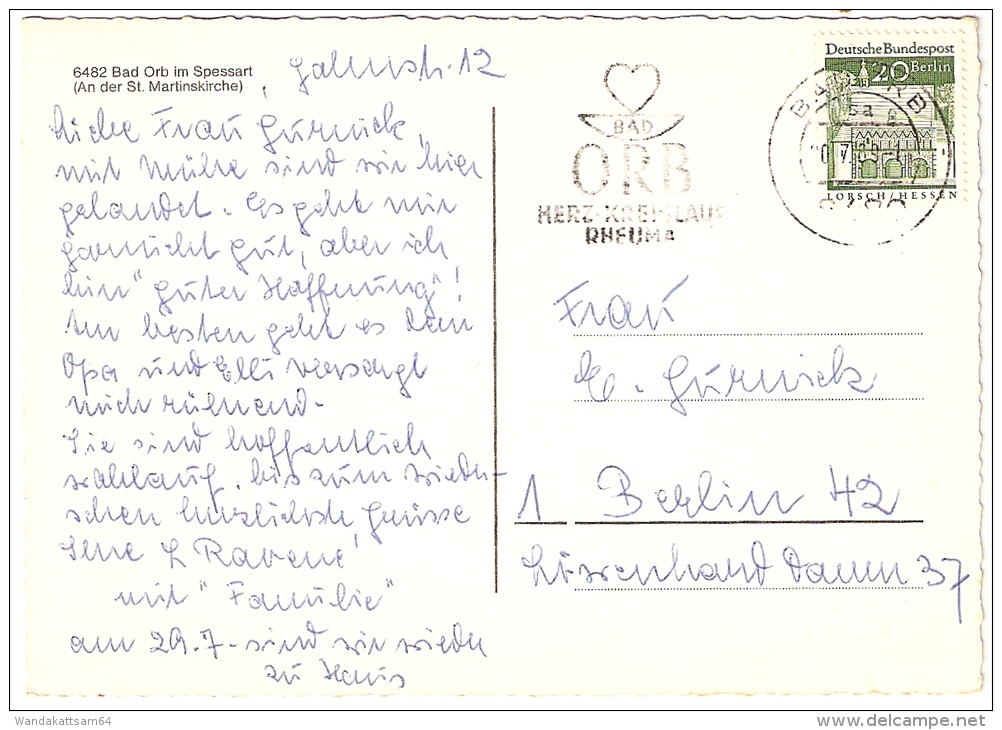 6482 Bad Orb im Spessart
(An der St. Martinskirche)
12
Liebe Frau Gurnick,
mit Mühe sind wir hier
gelandet. Es geht mir
garnicht gut, aber ich
bin "guter Hoffnung"!
Am besten geht es dem
Opa und Elli versorgt
mich rührend.
Sie sind hoffentlich
wohlauf, bis zum Wieder-
sehen herzlichste Grüsse
Ihre L Ravené
mit "Familie"
am 29.7. sind wir wieder
zu Haus
BAD
ORB
HERZ-KREISLAUF
RHEUMA
Deutsche Bundespost
20 Berlin
LORSCH / HESSEN
BAD ORB
Frau
E. Gurnick
1 Berlin 42
Lörsenhard Damm 37
Wandakattsam64
delcampe.net